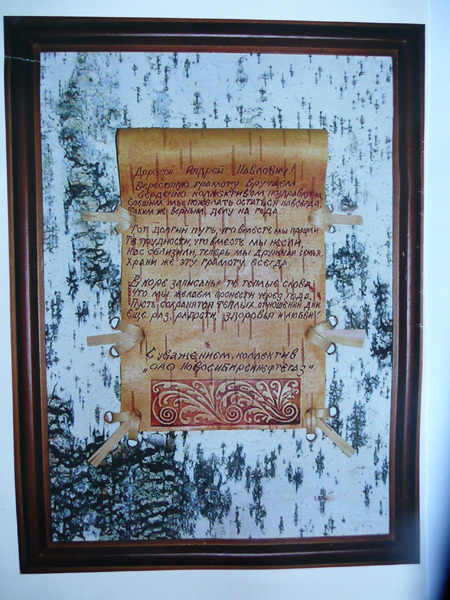 Дорогой Андрей Павлович!
Берестяную грамоту вручаем
Сердечно коллективом поздравляем
Спешим мы пожелать остаться навсегда
Таким же верным делу на года.
Тот долгий путь, что вместе мы прошли
Те трудности, что вместе мы несли,
Нас сблизили, теперь мы дружная семья,
Храни же эту грамоту всегда.
В коре записаны те теплые слова
Что мы желаем пронести через года,
Пусть сохранятся теплых отношений дни
Еще раз, радости, здоровья и любви!
С уважением, коллектив
"ОАО Новосибирскнефтегаз".